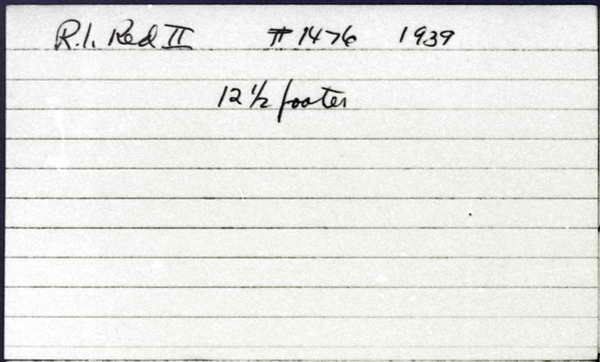 R.I. Red II #1476 1939
12 1/2 footer